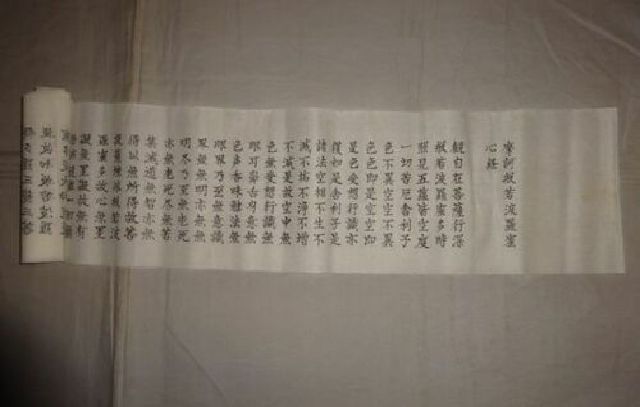 摩訶般若波羅蜜
心經
觀自在菩薩行深
般若波羅蜜多時
照見五蘊皆空度
一切苦厄舍利子
色不異空空不異
色色即是空空即
是色受想行識亦
復如是舍利子是
諸法空相不生不
滅不垢不淨不增
不減是故空中無
色無受想行識無
眼耳鼻舌身意無
色聲香味觸法無
眼界乃至無意識
界無無明亦無無
明盡乃至無老死
亦無老死盡無苦
集滅道無智亦無
得以無所得故菩
提薩埵依般若波
羅蜜多故心無罣
礙無罣礙故無有